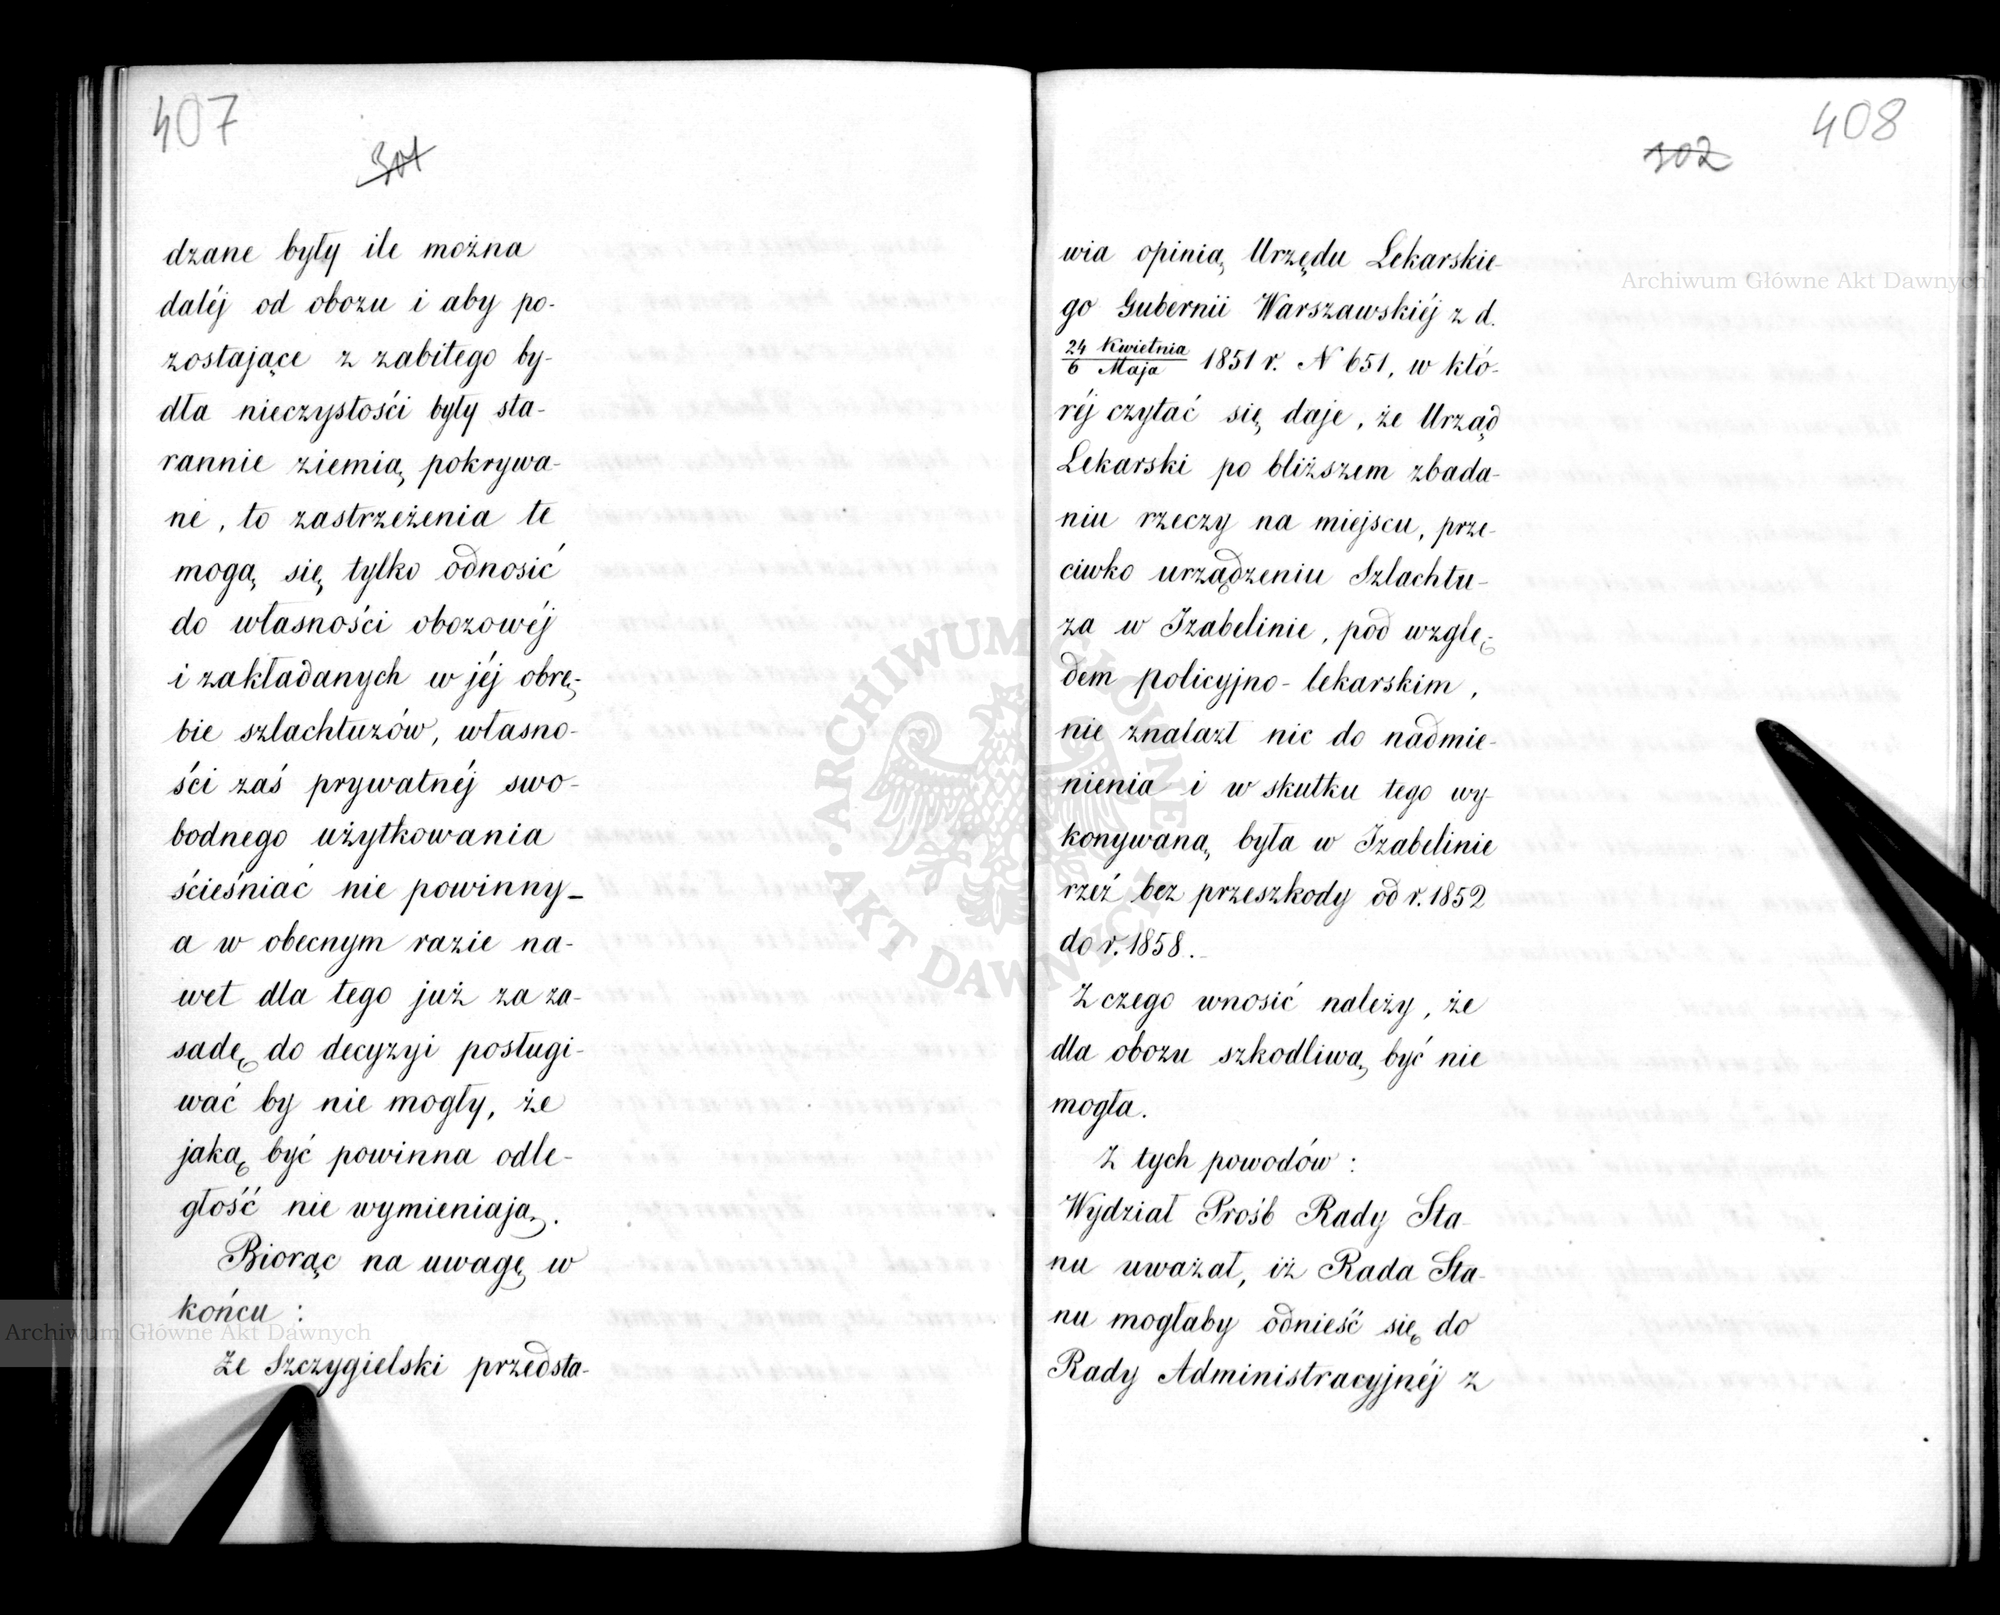 407
301
dzane były ile można
daléj od obozu i aby po-
zostające z zabitego by-
dła nieczystości były sta-
rannie ziemią pokrywa-
ne, to zastrzeżenia te
mogą się tylko odnosić
do własności obozowéj
i zakładanych w jéj obrę-
bie szlachtuzów, własno-
ści zaś prywatnéj swo-
bodnego użytkowania
ścieśniać nie powinny_
a w obecnym razie na-
wet dla tego już za za-
sadę do decyzyi posługi-
wać by nie mogły, że
jaką być powinna odle-
głość nie wymieniają.
Biorąc na uwagę w
końcu :
Że Szczygielski przedsta-
408
302
wia opinią Urzędu Lekarskie-
go Gubernii Warszawskiéj z d.
24 Kwietnia
6 Maja 1851 r. N 651, w któ-
réj czytać się daje, że Urząd
Lekarski po bliższem zbada-
niu rzeczy na miejscu, prze-
ciwko urządzeniu Szlachtu-
za w Izabelinie, pod wzglę-
dem policyjno-lekarskim,
nie znalazł nic do nadmie-
nienia i w skutku tego wy-
konywaną była w Izabelinie
rzeź bez przeszkody od r. 1852
do r. 1858.
Z czego wnosić należy, że
dla obozu szkodliwą być nie
mogła.
Z tych powodów :
Wydział Prośb Rady Sta-
nu uważał, iż Rada Sta-
nu mogłaby odnieść się do
Rady Administracyjnéj z
Archiwum Główne Akt Dawnych
Archiwum Główne Akt Dawnych
ARCHIWUM GŁÓWNE AKT DAWNYCH